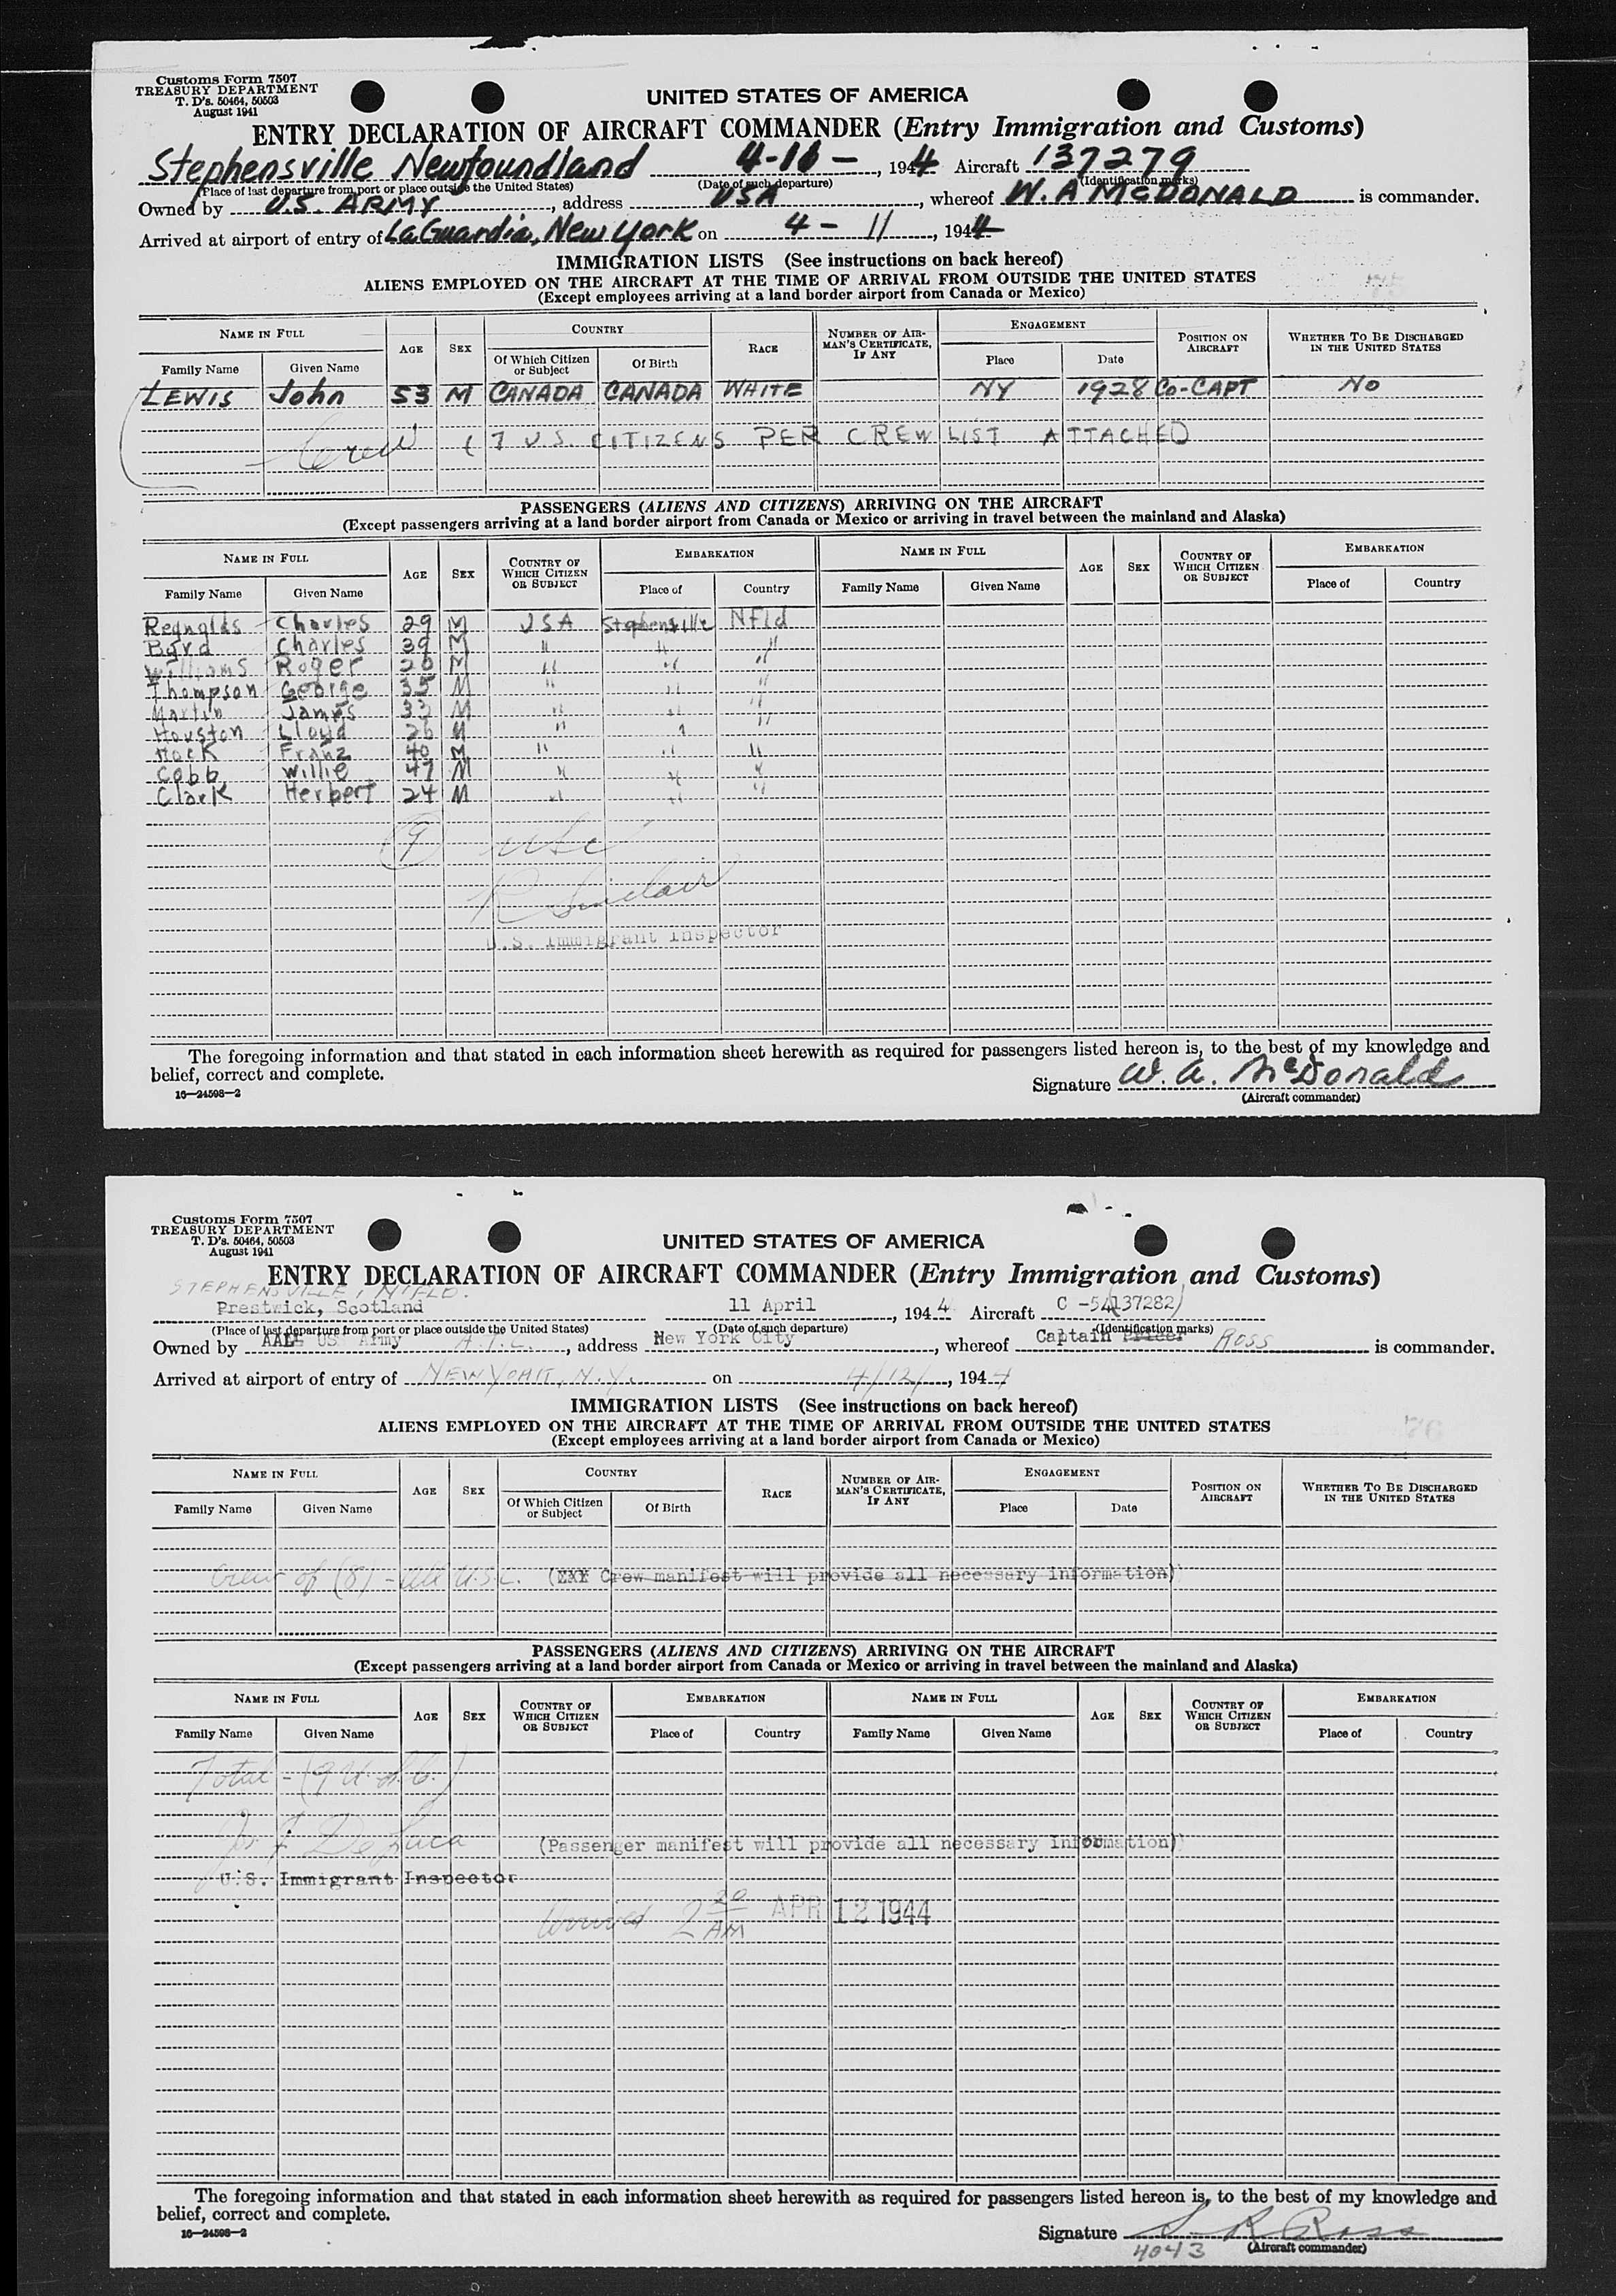 Customs Form 7507
TREASURY DEPARTMENT
T. D's. 50464, 50503
August 1941
UNITED STATES OF AMERICA
ENTRY DECLARATION OF AIRCRAFT COMMANDER (Entry Immigration and Customs)
Stephensville Newfoundland 4-10-, 1944 Aircraft 137279
(Place of last departure from port or place outside the United States) (Date of such departure) (Identification marks)
Owned by U.S. ARMY, address USA, whereof W. A McDONALD is commander.
Arrived at airport of entry of LaGuardia, New York on 4-11, 1944
IMMIGRATION LISTS (See instructions on back hereof)
ALIENS EMPLOYED ON THE AIRCRAFT AT THE TIME OF ARRIVAL FROM OUTSIDE THE UNITED STATES
(Except employees arriving at a land border airport from Canada or Mexico)
NAME IN FULL AGE SEX COUNTRY RACE NUMBER OF AIRMAN'S CERTIFICATE, IF ANY ENGAGEMENT POSITION ON AIRCRAFT WHETHER TO BE DISCHARGED IN THE UNITED STATES
Family Name Given Name Of Which Citizen or Subject Of Birth Place Date
LEWIS John 53 M CANADA CANADA WHITE NY 1928 CO-CAPT NO
Crew (7 U.S. CITIZENS PER CREW LIST ATTACHED
PASSENGERS (ALIENS AND CITIZENS) ARRIVING ON THE AIRCRAFT
(Except passengers arriving at a land border airport from Canada or Mexico or arriving in travel between the mainland and Alaska)
NAME IN FULL AGE SEX COUNTRY OF WHICH CITIZEN OR SUBJECT EMBARKATION NAME IN FULL AGE SEX COUNTRY OF WHICH CITIZEN OR SUBJECT EMBARKATION
Family Name Given Name Place of Country Family Name Given Name Place of Country
Reynolds Charles 29 M USA Stephensville Nfld
Byrd Charles 39 M " " "
Williams Roger 20 M " " "
Thompson George 35 M " " "
Martin James 33 M " " "
Houston Lloyd 26 M " "
Hock Franz 40 M " " "
Cobb Willie 47 M " " "
Clark Herbert 24 M " " "
(9) USC
R Sinclair
U.S. Immigrant Inspector
The foregoing information and that stated in each information sheet herewith as required for passengers listed hereon is, to the best of my knowledge and
belief, correct and complete.
Signature W. A. McDonald
16—24598—2 (Aircraft commander)
Customs Form 7507
TREASURY DEPARTMENT
T. D's. 50464, 50503
August 1941
UNITED STATES OF AMERICA
ENTRY DECLARATION OF AIRCRAFT COMMANDER (Entry Immigration and Customs)
STEPHENSVILLE, NFLD.
Prestwick, Scotland 11 April, 1944 Aircraft C-54(137282)
(Place of last departure from port or place outside the United States) (Date of such departure) (Identification marks)
Owned by AAL US Army A.T.C., address New York City, whereof Captain Ross is commander.
Arrived at airport of entry of NEW YORK, N.Y. on 4/12/, 1944
IMMIGRATION LISTS (See instructions on back hereof)
ALIENS EMPLOYED ON THE AIRCRAFT AT THE TIME OF ARRIVAL FROM OUTSIDE THE UNITED STATES
(Except employees arriving at a land border airport from Canada or Mexico)
NAME IN FULL AGE SEX COUNTRY RACE NUMBER OF AIRMAN'S CERTIFICATE, IF ANY ENGAGEMENT POSITION ON AIRCRAFT WHETHER TO BE DISCHARGED IN THE UNITED STATES
Family Name Given Name Of Which Citizen or Subject Of Birth Place Date
Crew of (8) - All U.S.C. (Crew manifest will provide all necessary information)
PASSENGERS (ALIENS AND CITIZENS) ARRIVING ON THE AIRCRAFT
(Except passengers arriving at a land border airport from Canada or Mexico or arriving in travel between the mainland and Alaska)
NAME IN FULL AGE SEX COUNTRY OF WHICH CITIZEN OR SUBJECT EMBARKATION NAME IN FULL AGE SEX COUNTRY OF WHICH CITIZEN OR SUBJECT EMBARKATION
Family Name Given Name Place of Country Family Name Given Name Place of Country
Total - (9 U.S.C.)
De Luca (Passenger manifest will provide all necessary information)
U.S. Immigrant Inspector
Arrived 2 20 AM APR 12 1944
The foregoing information and that stated in each information sheet herewith as required for passengers listed hereon is, to the best of my knowledge and
belief, correct and complete.
Signature S R Ross
16—24598—2 4043 (Aircraft commander)